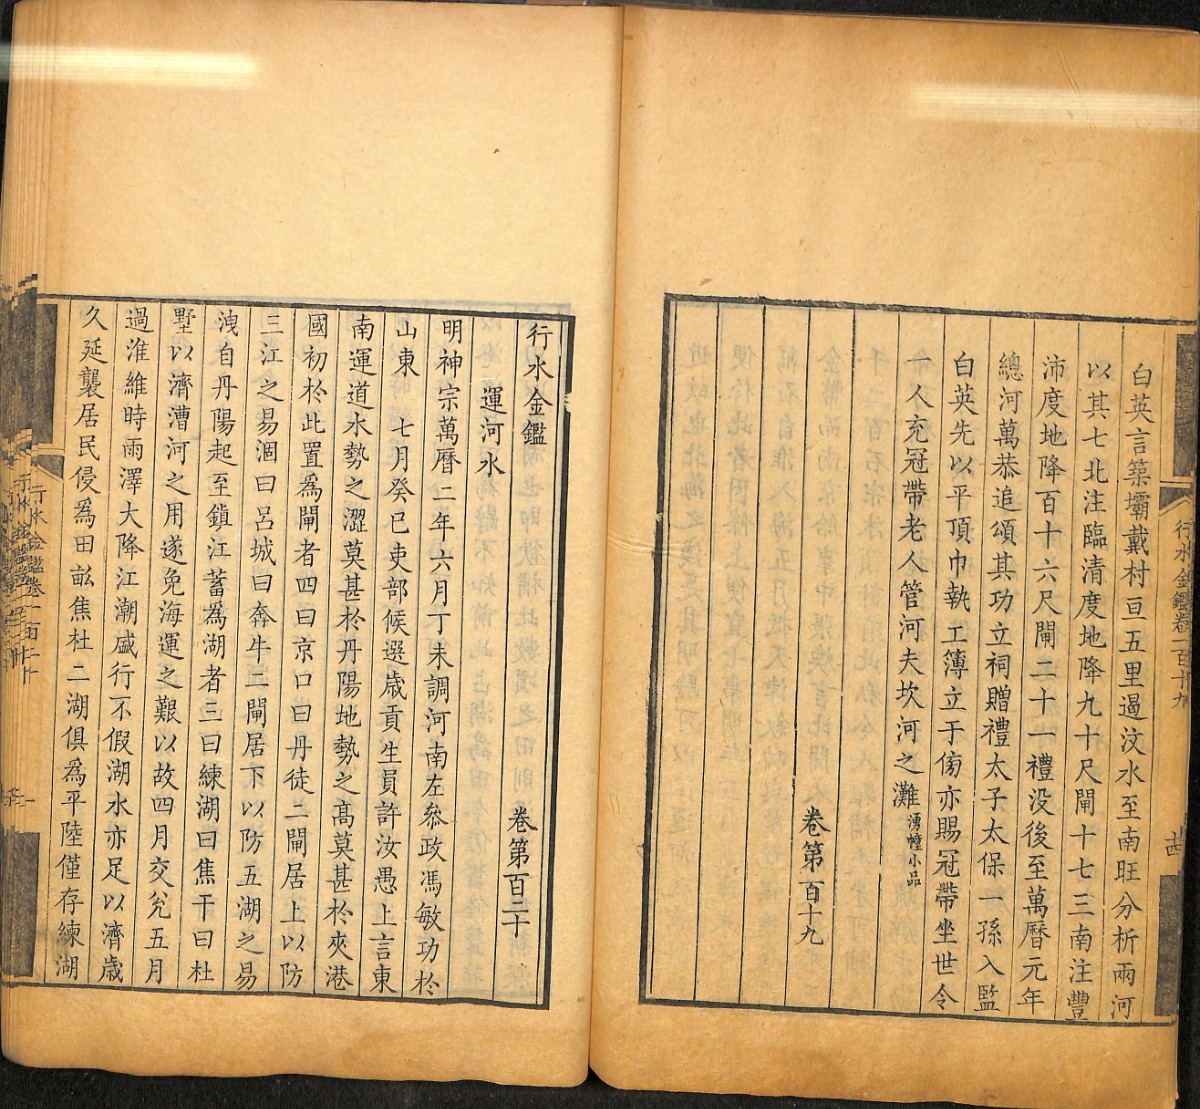 白英言築壩戴村亘五里遏汶水至南旺分析兩河
以其七北注臨清度地降九十尺閘十七三南注豐
沛度地降百十六尺閘二十一禮没後至萬曆元年
總河萬恭追頌其功立祠贈禮太子太保一孫入監
白英先以平頂巾執工簿立于傍亦賜冠帶坐世令
一人充冠帶老人管河夫坎河之灘湧幢小品
卷第一百十九
行水金鑑卷一百十九
行水金鑑
卷第百二十
運河水
明神宗萬曆二年六月丁未調河南左叅政馮敏功於
山東 七月癸巳吏部候選歲貢生員許汝愚上言東
南運道水勢之澀莫甚於丹陽地勢之高莫甚於夾港
國初於此置爲閘者四曰京口曰丹徒二閘居上以防
三江之易涸曰呂城曰奔牛二閘居下以防五湖之易
洩自丹陽起至鎮江蓄爲湖者三曰練湖曰焦干曰杜
墅以濟漕河之用遂免海運之艱以故四月交兊五月
過淮維時雨澤大降江潮盛行不假湖水亦足以濟歲
久延襲居民侵爲田畝焦杜二湖俱爲平陸僅存練湖
行水金鑑卷一百二十